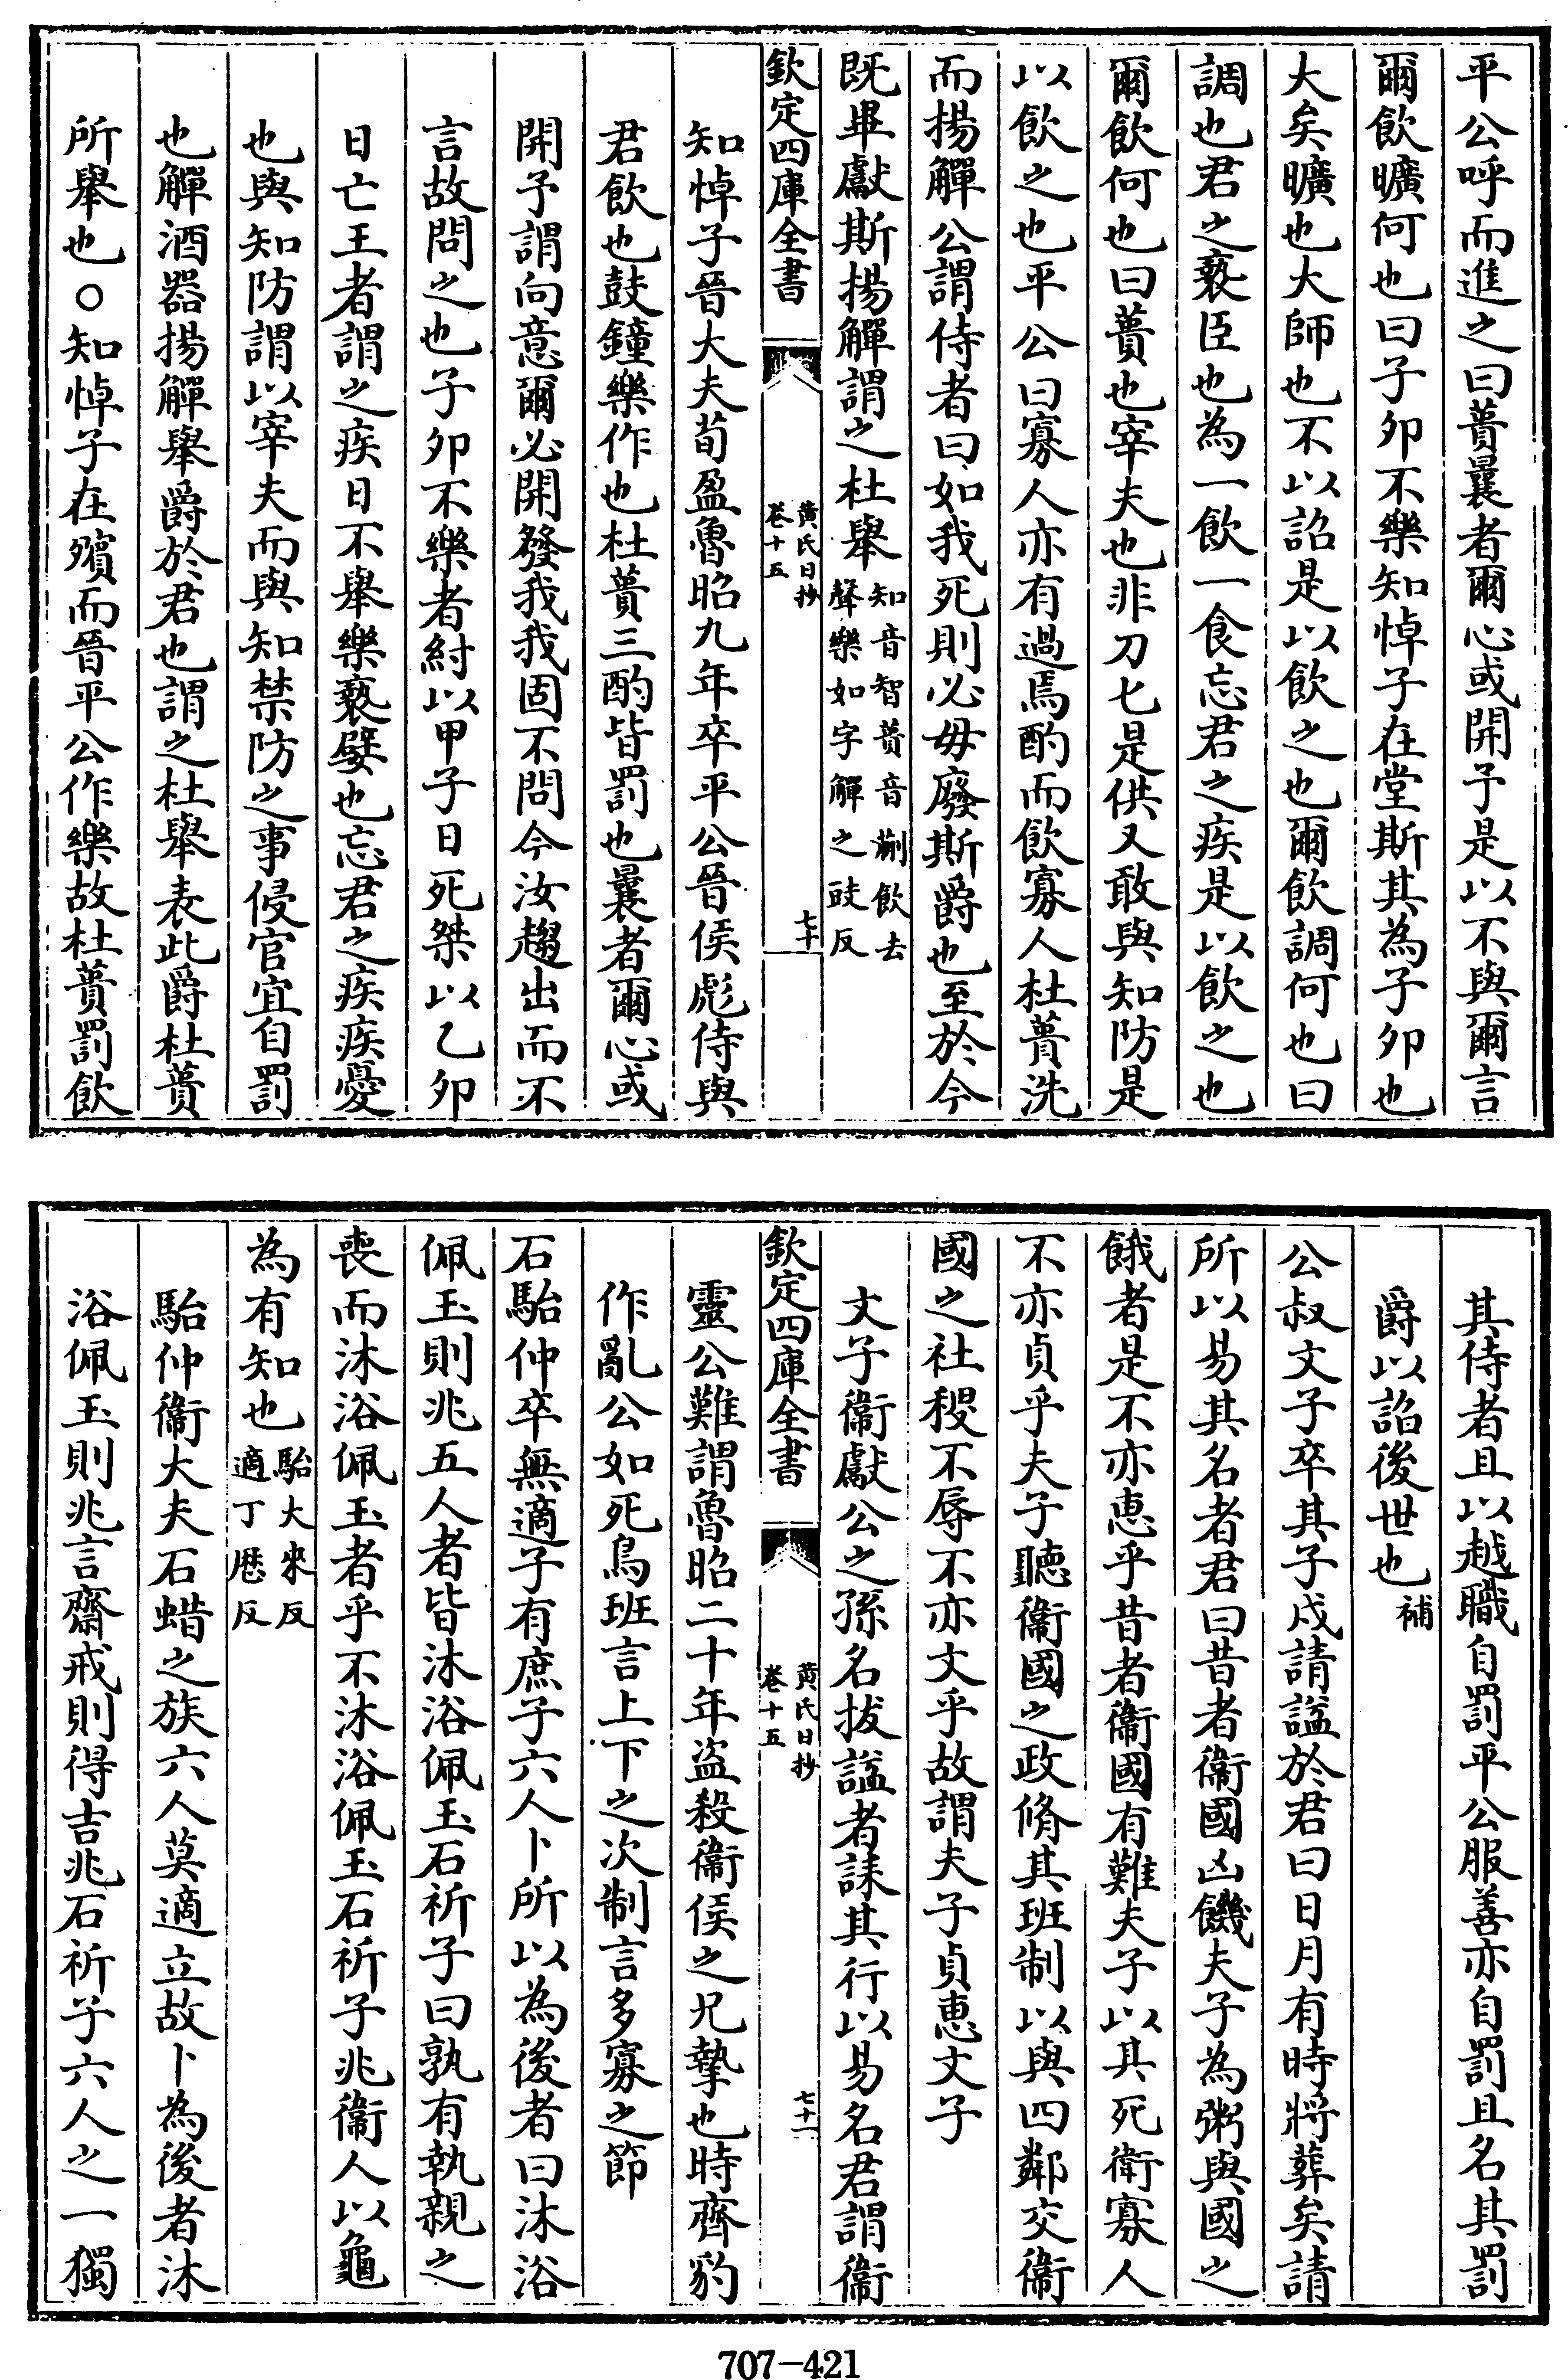 平公呼而進之曰蕢曩者爾心或開予是以不與爾言
爾飲曠何也曰子卯不樂知悼子在堂斯其為子卯也
大矣曠也大師也不以詔是以飲之也爾飲調何也曰
調也君之褻臣也為一飲一食忘君之疾是以飲之也
爾飲何也曰蕢也宰夫也非刀匕是供又敢與知防是
以飲之也平公曰寡人亦有過焉酌而飲寡人杜蕢洗
而揚觶公謂侍者曰如我死則必毋廢斯爵也至於今
既畢獻斯揚觶謂之杜舉知音智蕢音蒯飲去
聲樂如字觶之豉反
欽定四庫全書
黃氏日抄
卷十五
七十
知悼子晉大夫荀盈魯昭九年卒平公晉侯彪侍與
君飲也鼓鐘樂作也杜蕢三酌皆罰也曩者爾心或
開予謂向意爾必開發我我固不問今汝趨出而不
言故問之也子卯不樂者紂以甲子日死桀以乙卯
日亡王者謂之疾日不舉樂褻嬖也忘君之疾疾憂
也與知防謂以宰夫而與知禁防之事侵官宜自罰
也觶酒器揚觶舉爵於君也謂之杜舉表此爵杜蕢
所舉也○知悼子在殯而晉平公作樂故杜蕢罰飲
其侍者且以越職自罰平公服善亦自罰且名其罰
爵以詔後世也補
公叔文子卒其子戍請謚於君曰日月有時將葬矣請
所以易其名者君曰昔者衞國凶饑夫子為粥與國之
餓者是不亦惠乎昔者衞國有難夫子以其死衛寡人
不亦貞乎夫子聽衞國之政脩其班制以與四鄰交衞
國之社稷不辱不亦文乎故謂夫子貞惠文子
文子衞獻公之孫名拔謚者誄其行以易名君謂衞
欽定四庫全書
黃氏日抄
卷十五
七十一
靈公難謂魯昭二十年盜殺衞侯之兄摯也時齊豹
作亂公如死鳥班言上下之次制言多寡之節
石駘仲卒無適子有庶子六人卜所以為後者曰沐浴
佩玉則兆五人者皆沐浴佩玉石祈子曰孰有執親之
喪而沐浴佩玉者乎不沐浴佩玉石祈子兆衞人以龜
為有知也駘大來反
適丁厯反
駘仲衞大夫石蜡之族六人莫適立故卜為後者沐
浴佩玉則兆言齋戒則得吉兆石祈子六人之一獨
707-421